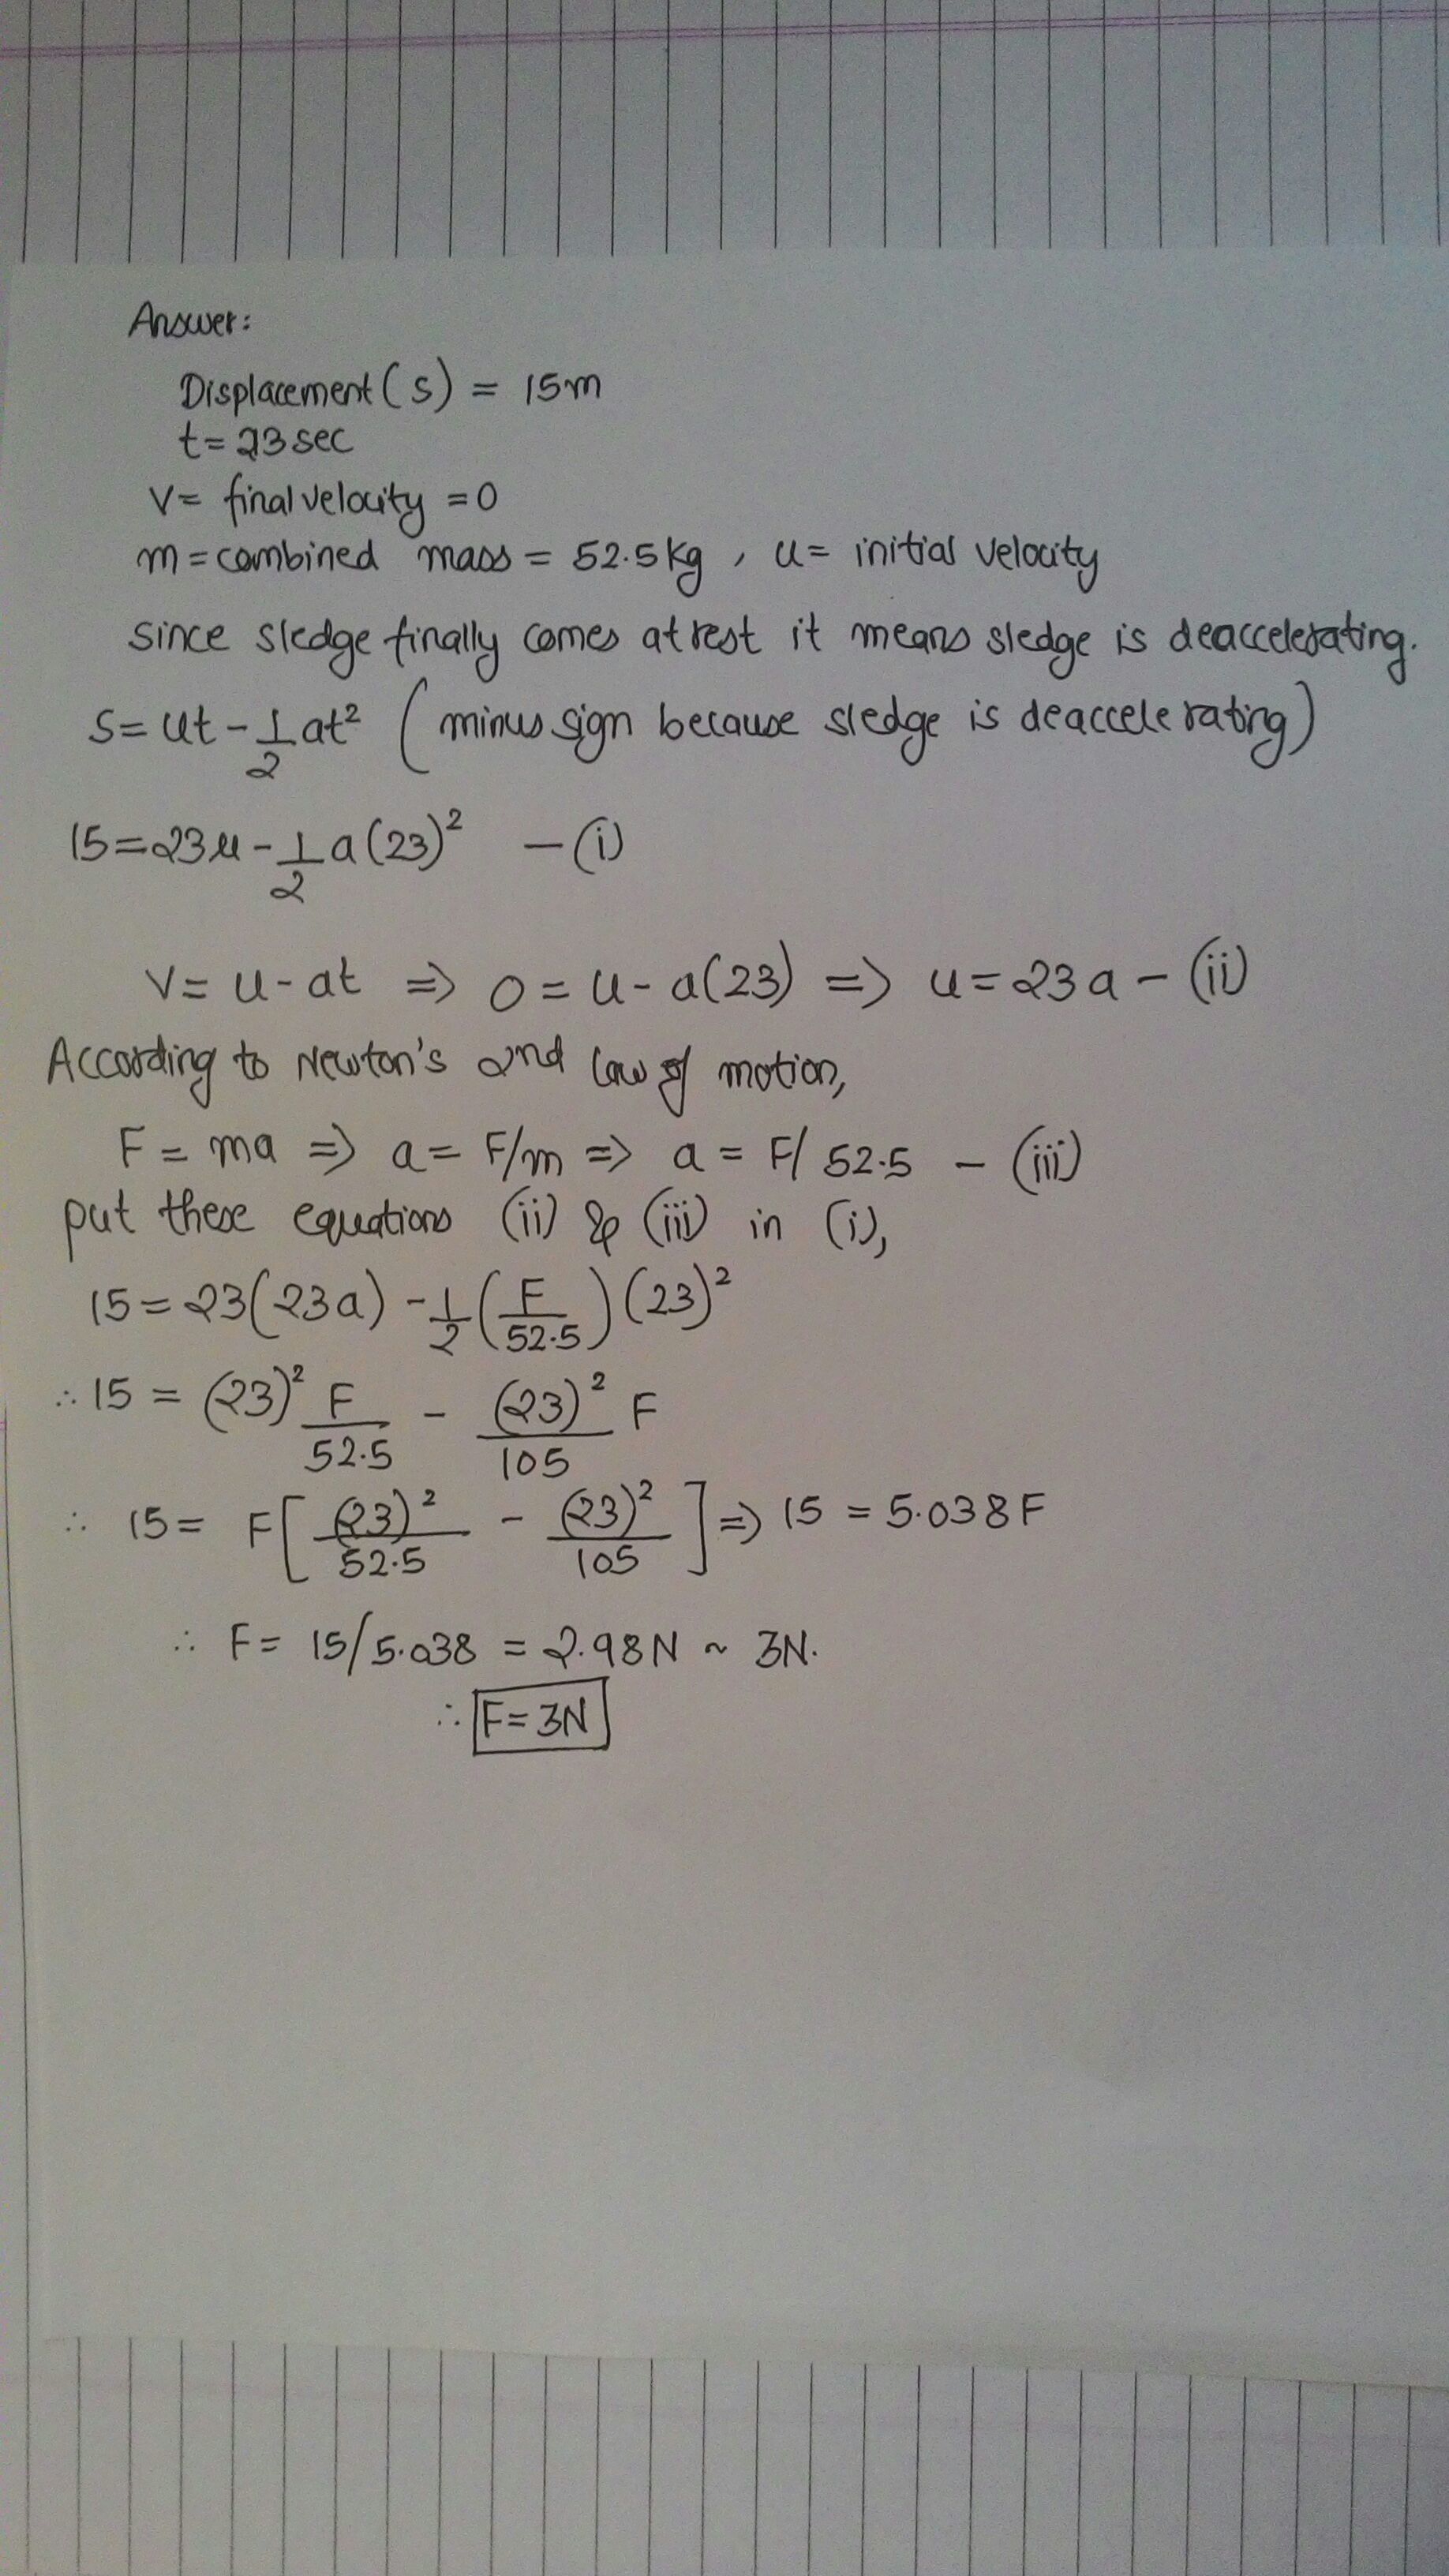 Answer:
Displacement(s) = 15m
t= 23 sec
V= final velocity = 0
m = combined mass = 52.5 kg , u= initial velocity
since sledge finally comes at rest it means sledge is deaccelerating.
S= ut - 1/2 at² ( minus sign because sledge is deaccelerating)
15=23u - 1/2 a(23)² - (i)
V= u-at => 0 = u- a(23) => u= 23a - (ii)
According to Newton's 2nd law of motion,
F = ma => a= F/m => a = F/ 52.5 - (iii)
put these equations (ii) & (iii) in (i),
15=23(23a) - 1/2 (F/52.5) (23)²
∴ 15 = (23)² F/52.5 - (23)²/105 F
∴ 15= F[ (23)²/52.5 - (23)²/105 ] => 15 = 5.038F
∴ F= 15/5.038 = 2.98N ~ 3N.
∴ F=3N